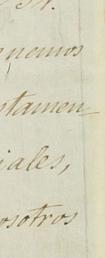 34.
nemos
stamen
iales,
osotros